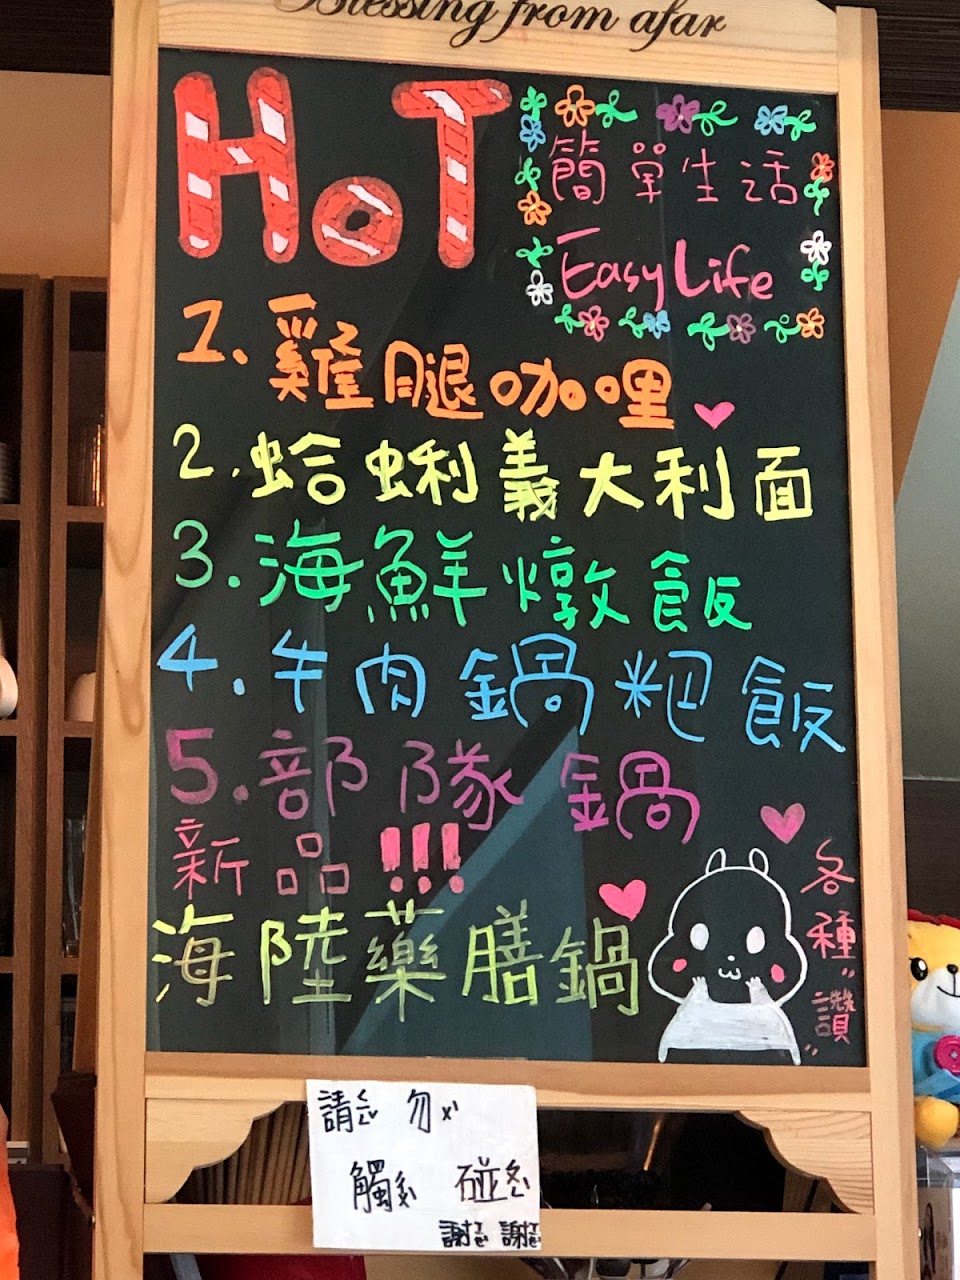 Blessing from afar
HOT
簡單生活
Easy Life
1. 雞腿咖哩
2. 蛤蜊義大利面
3. 海鮮燉飯
4. 牛肉鍋粑飯
5. 部隊鍋
新品!!!
海陸藥膳鍋
各種"讚"
請ㄑㄧㄥˇ 勿ㄨˋ
觸ㄔㄨˋ 碰ㄆㄥˋ
謝謝 謝謝